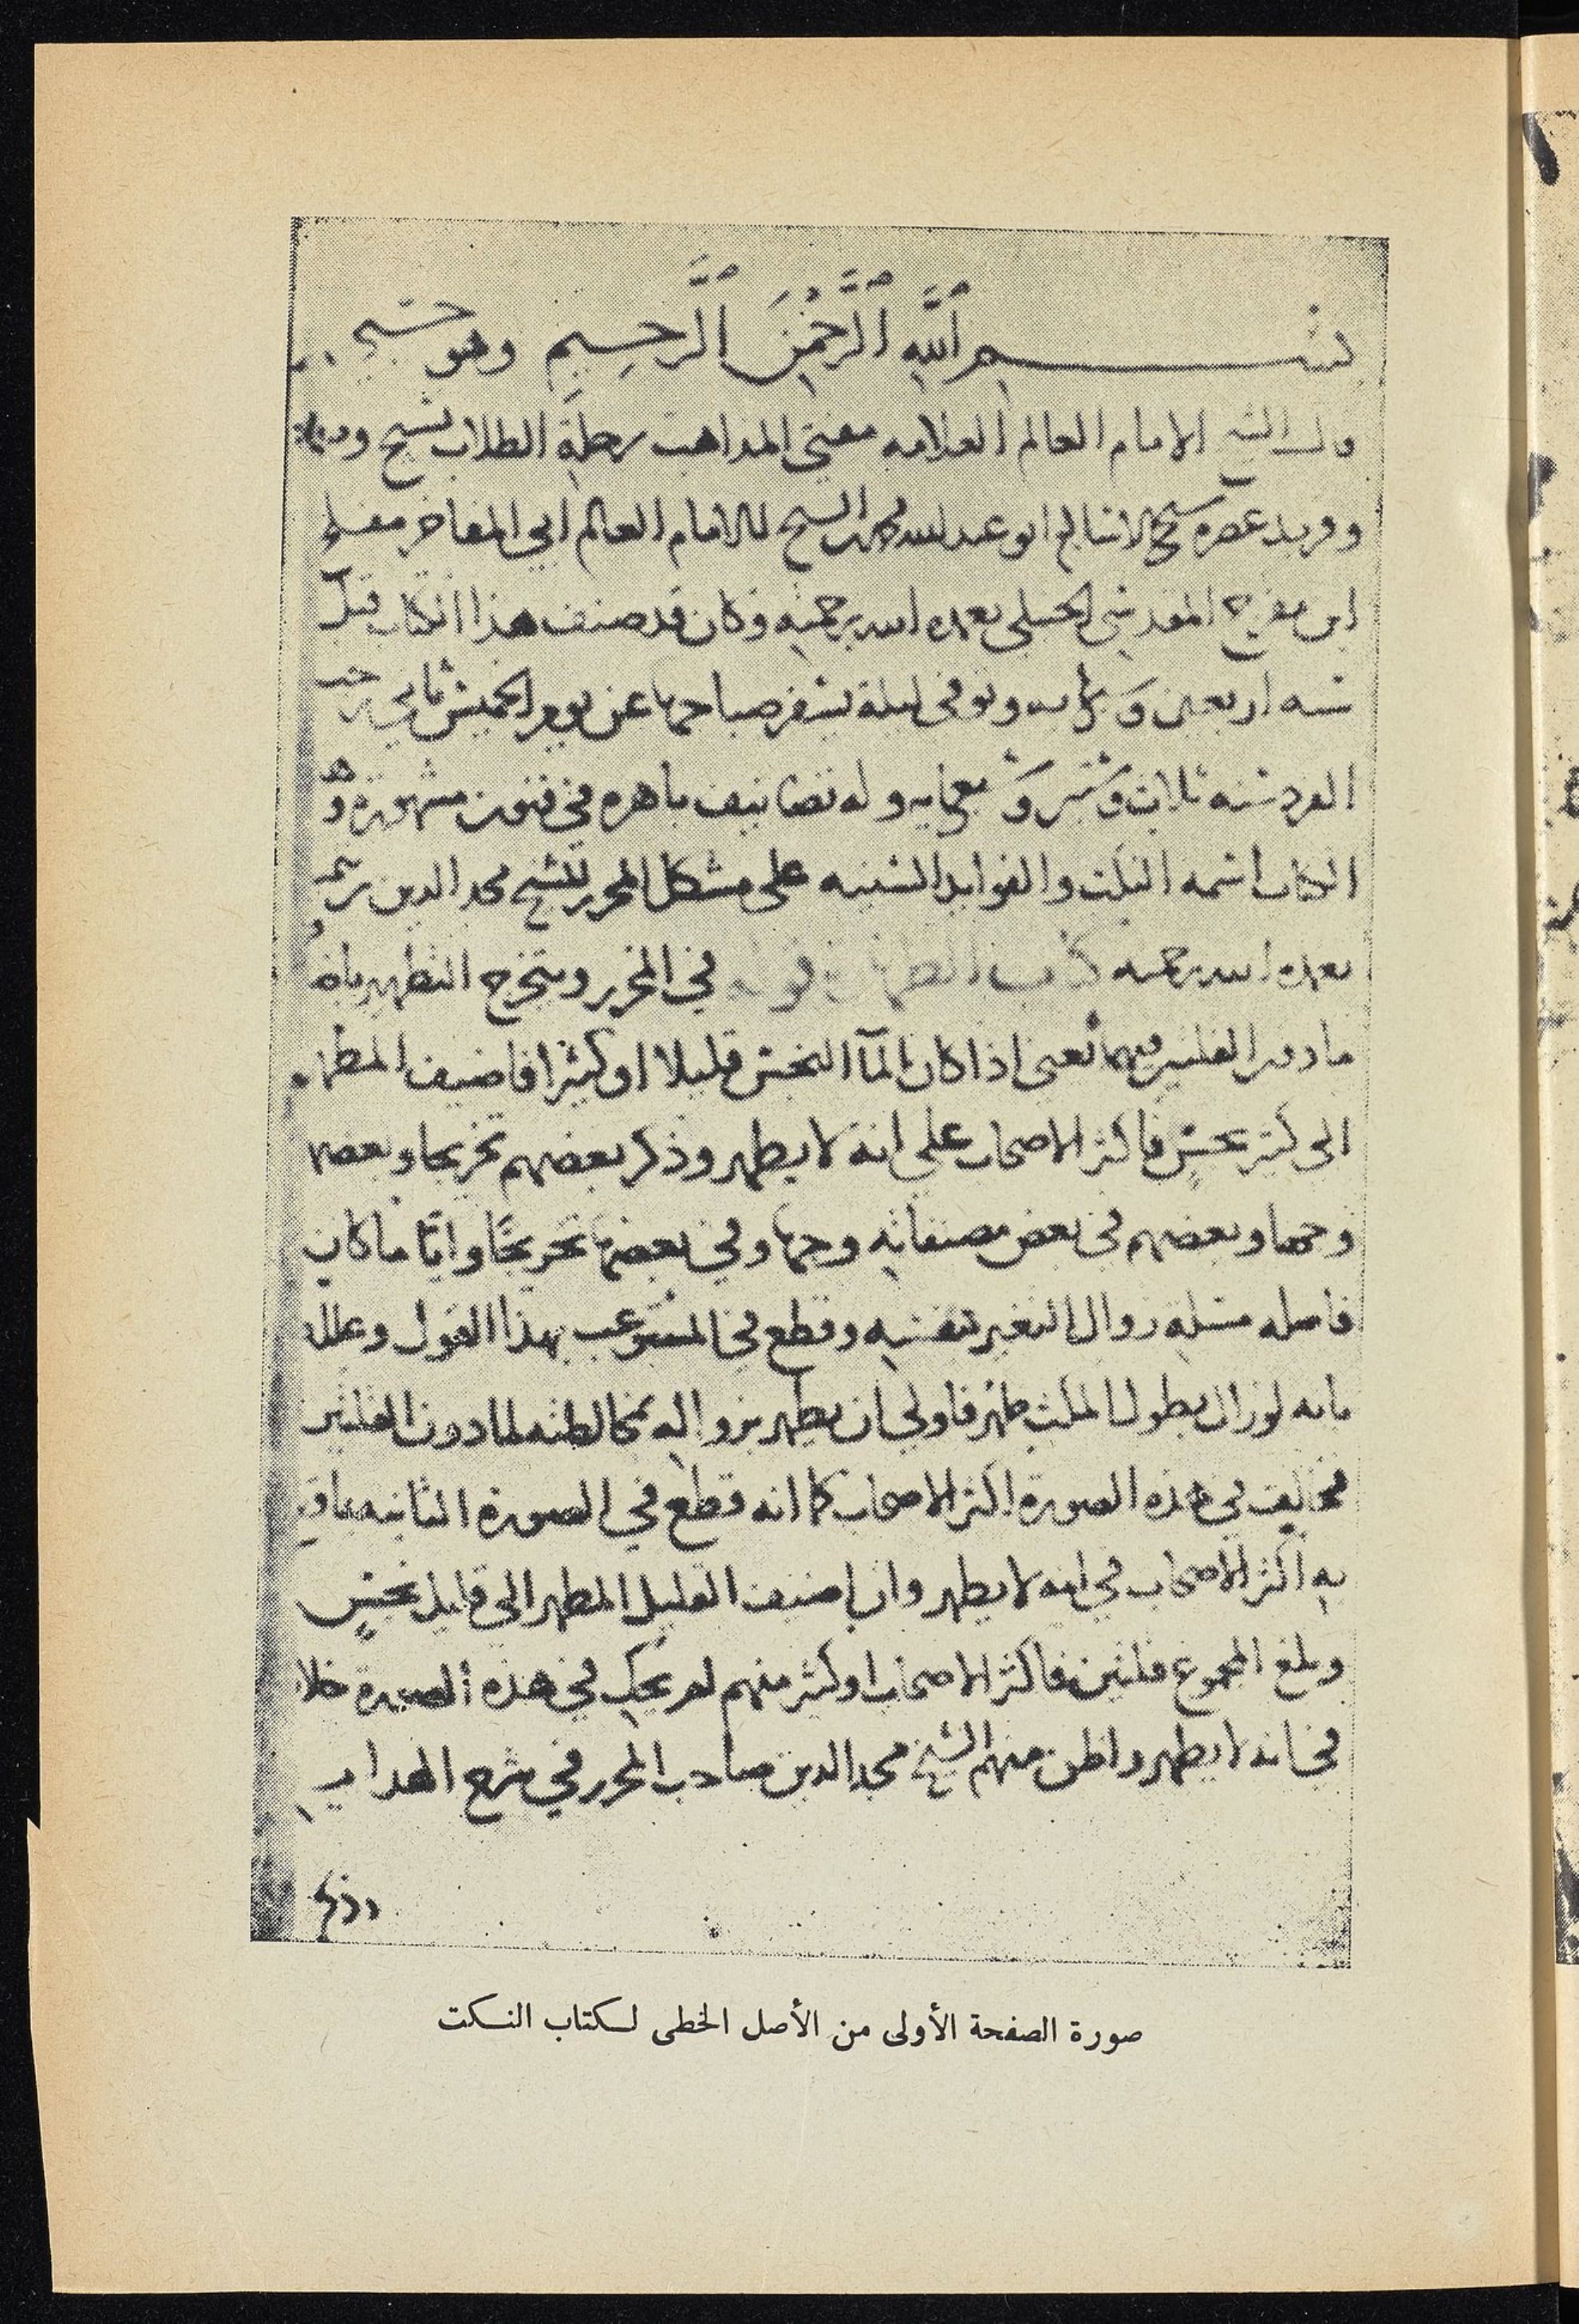 بسم الله الرحمن الرحيم وهو حسبي
قال الشيخ الامام العالم العلامه مفتي المذاهب رحلة الطلاب نسيج
وفريد عصره شمس الدين ابو عبد الله محمد الشيخ الامام العالم ابي المفاخر مفلح
ابن مفرج المقدسي الحنبلي تغمده الله برحمته وكان قد صنف هذا الكتاب قبل
سنه اربعين وسبعمايه وتوفي ليلة يسفر صباحها عن يوم الخميس ثاني رجب
الفرد سنه ثلاث وستين وسبعمايه وله تصانيف باهره في فنون مشهورة وهذا
الكتاب اسمه النكت والفوايد السنيه على مشكل المحرر للشيخ مجد الدين تيميه
تغمده الله برحمته كتاب الطهارة قوله في المحرر ويتخرج التطهير باضافة
ما دون القلتين فيهما يعني اذا كان المآ النجس قليلا او كثيرا فاضيف المطهر
الى كثير نجس فاكثر الاصحاب على انه لا يطهر وذكر بعضهم تخريجا وبعضهم
وجها وبعضهم في بعض مصنفاته وجها وفي بعضها تخريجًا وايّا ما كان
فاصله مسلة زوال التغير بنفسه وقطع في المستوعب بهذا القول وعلله
بانه لو زال بطول المكث طهر فاولي ان يطهر بزواله بمخالطته لما دون القلتين
فخالف في هذه الصورة اكثر الاصحاب كما انه قطع في الصورة الثانيه بما قطع
به اكثر الاصحاب في انه لا يطهر وان اضيف القليل المطهر الى قليل نجس
وبلغ المجموع قلتين فاكثر الاصحاب او كثير منهم لم يحك في هذه الصورة خلافا
في انه لا يطهر واظن منهم الشيخ مجد الدين صاحب المحرر في شرح الهدايه
وذكر
صورة الصفحة الأولى من الأصل الخطى لكتاب النكت